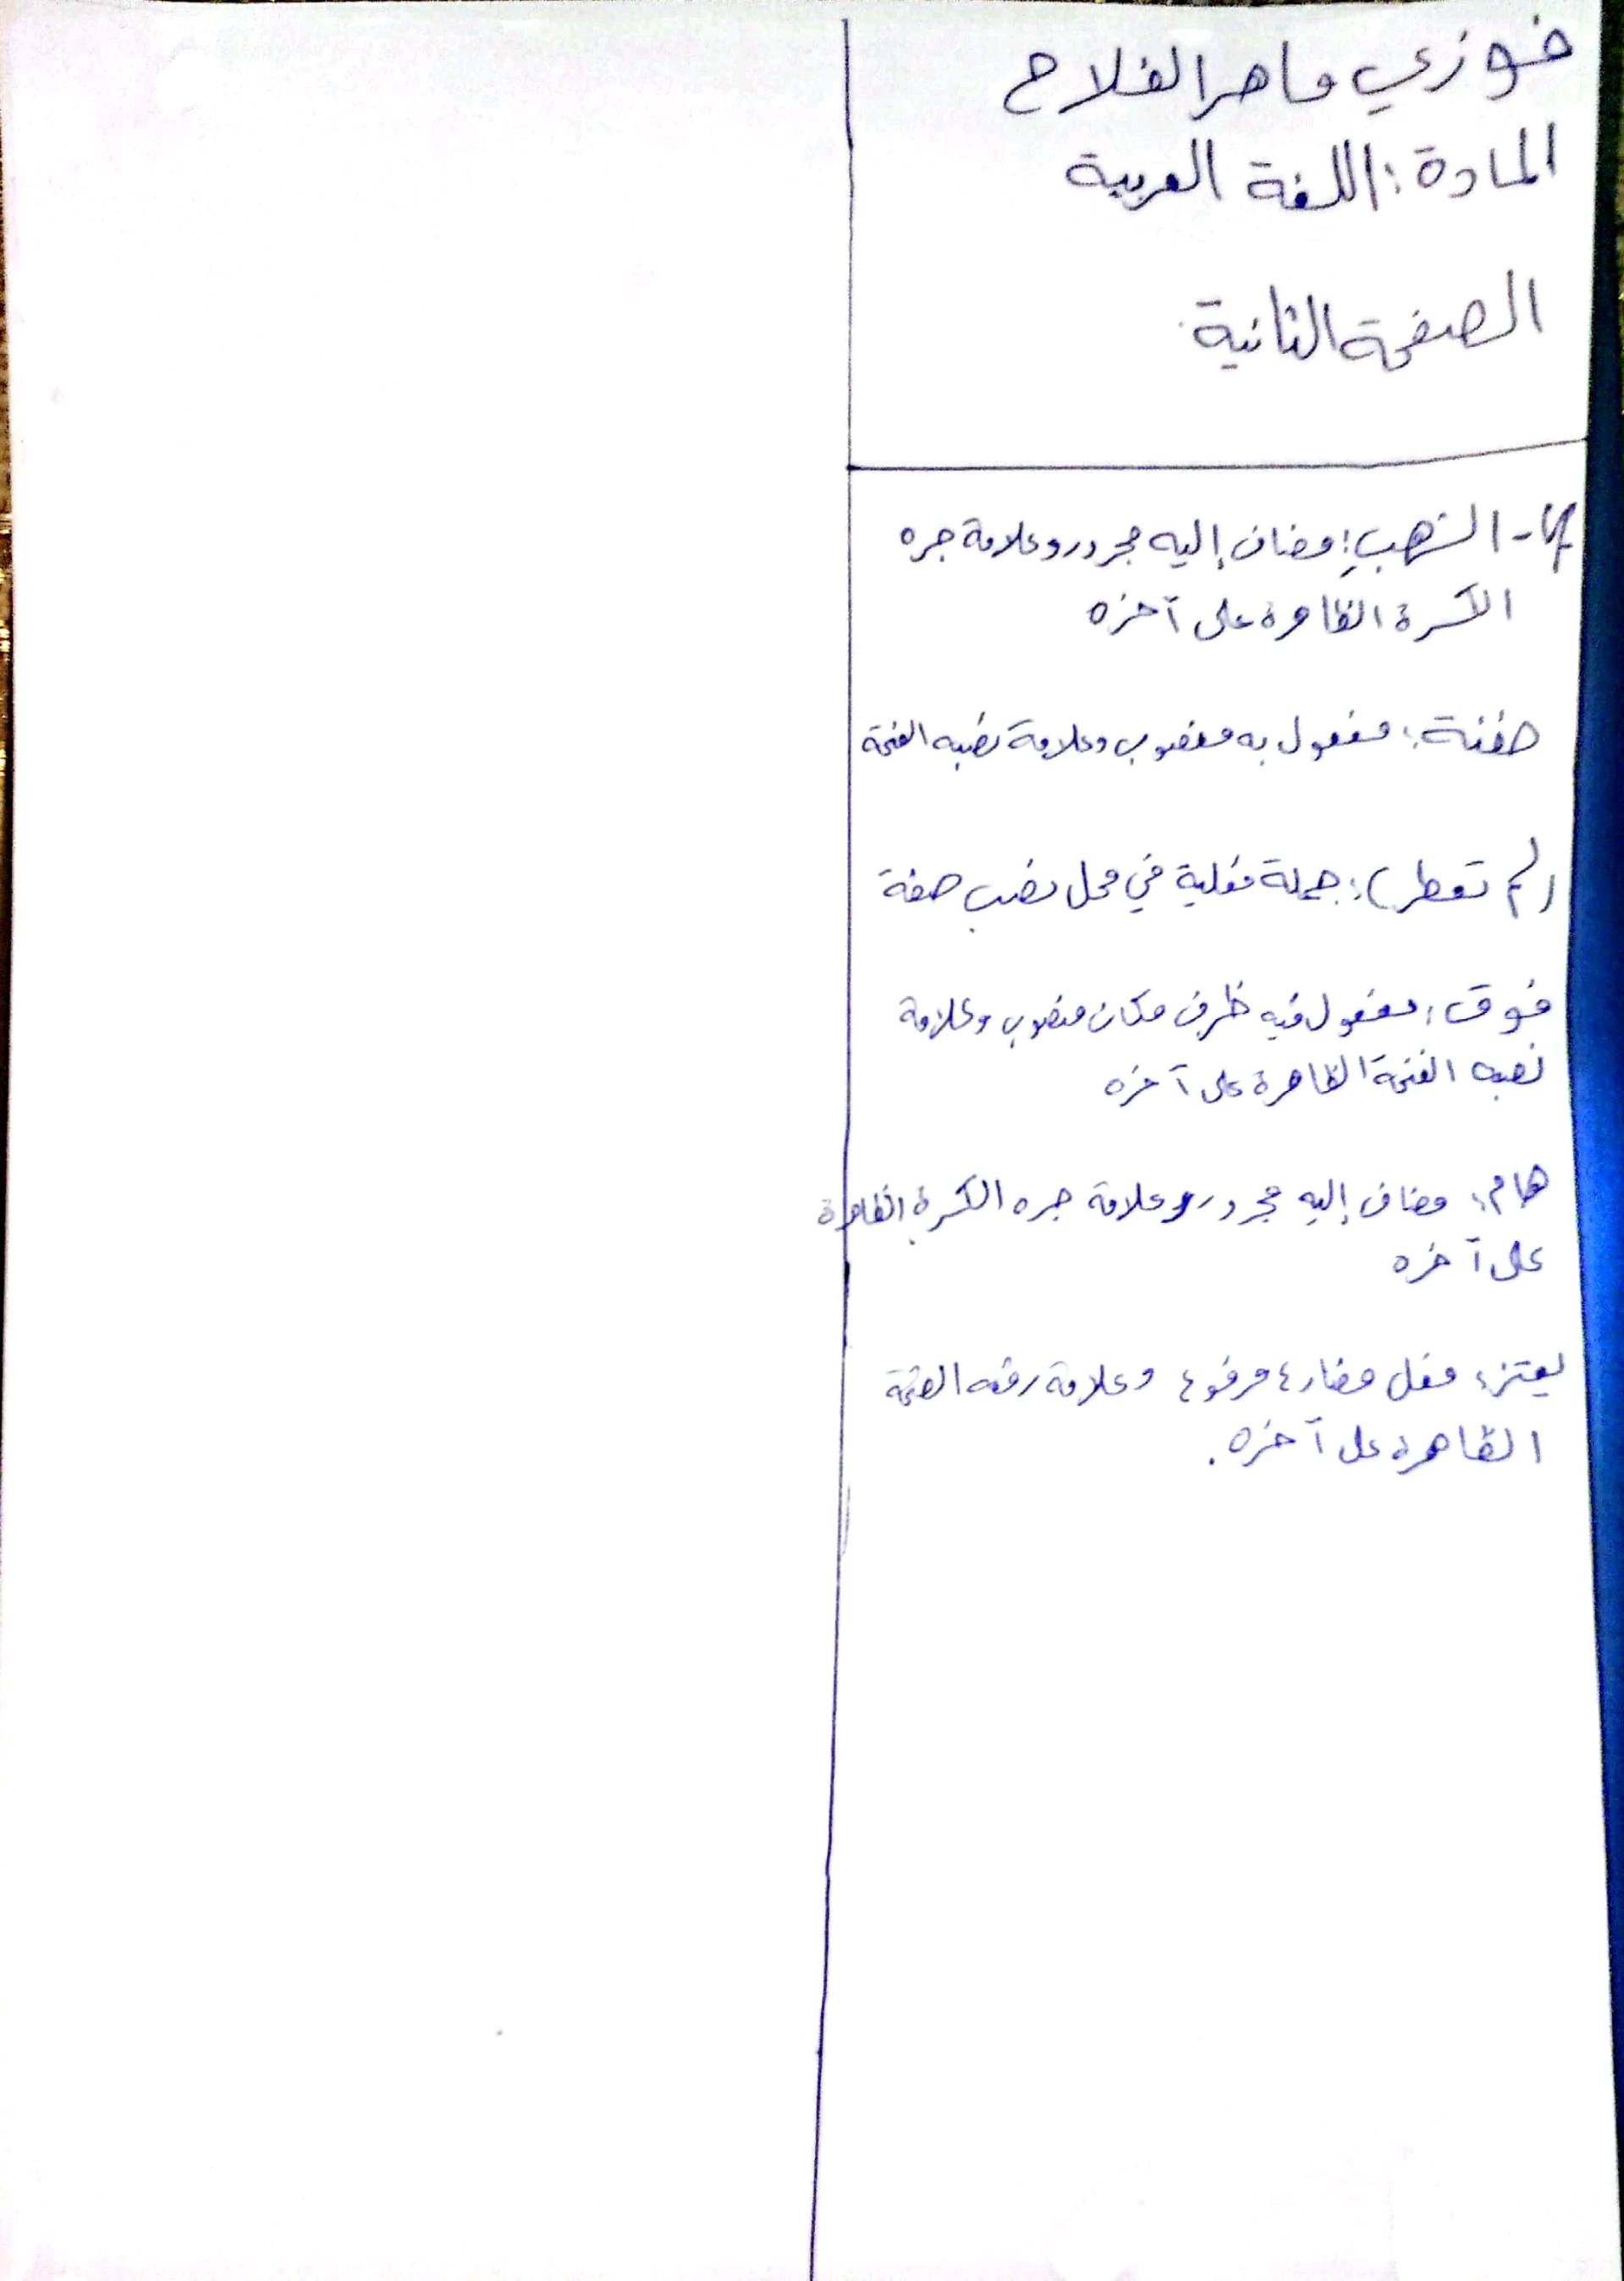 فوزي ماهر الفلاح
المادة: اللغة العربية
الصفحة الثانية
الذهبِ: مضاف إليه مجرور وعلامة جره
الكسرة الظاهرة على آخره
حفنة: مفعول به منصوب وعلامة نصبه الفتحة
(لم تعطر): جملة فعلية في محل نصب صفة
فوق: مفعول فيه ظرف مكان منصوب وعلامة
نصبه الفتحة الظاهرة على آخره
هام: مضاف إليه مجرور وعلامة جره الكسرة الظاهرة
على آخره
يعتز: فعل مضارع مرفوع وعلامة رفعه الضمة
الظاهرة على آخره.